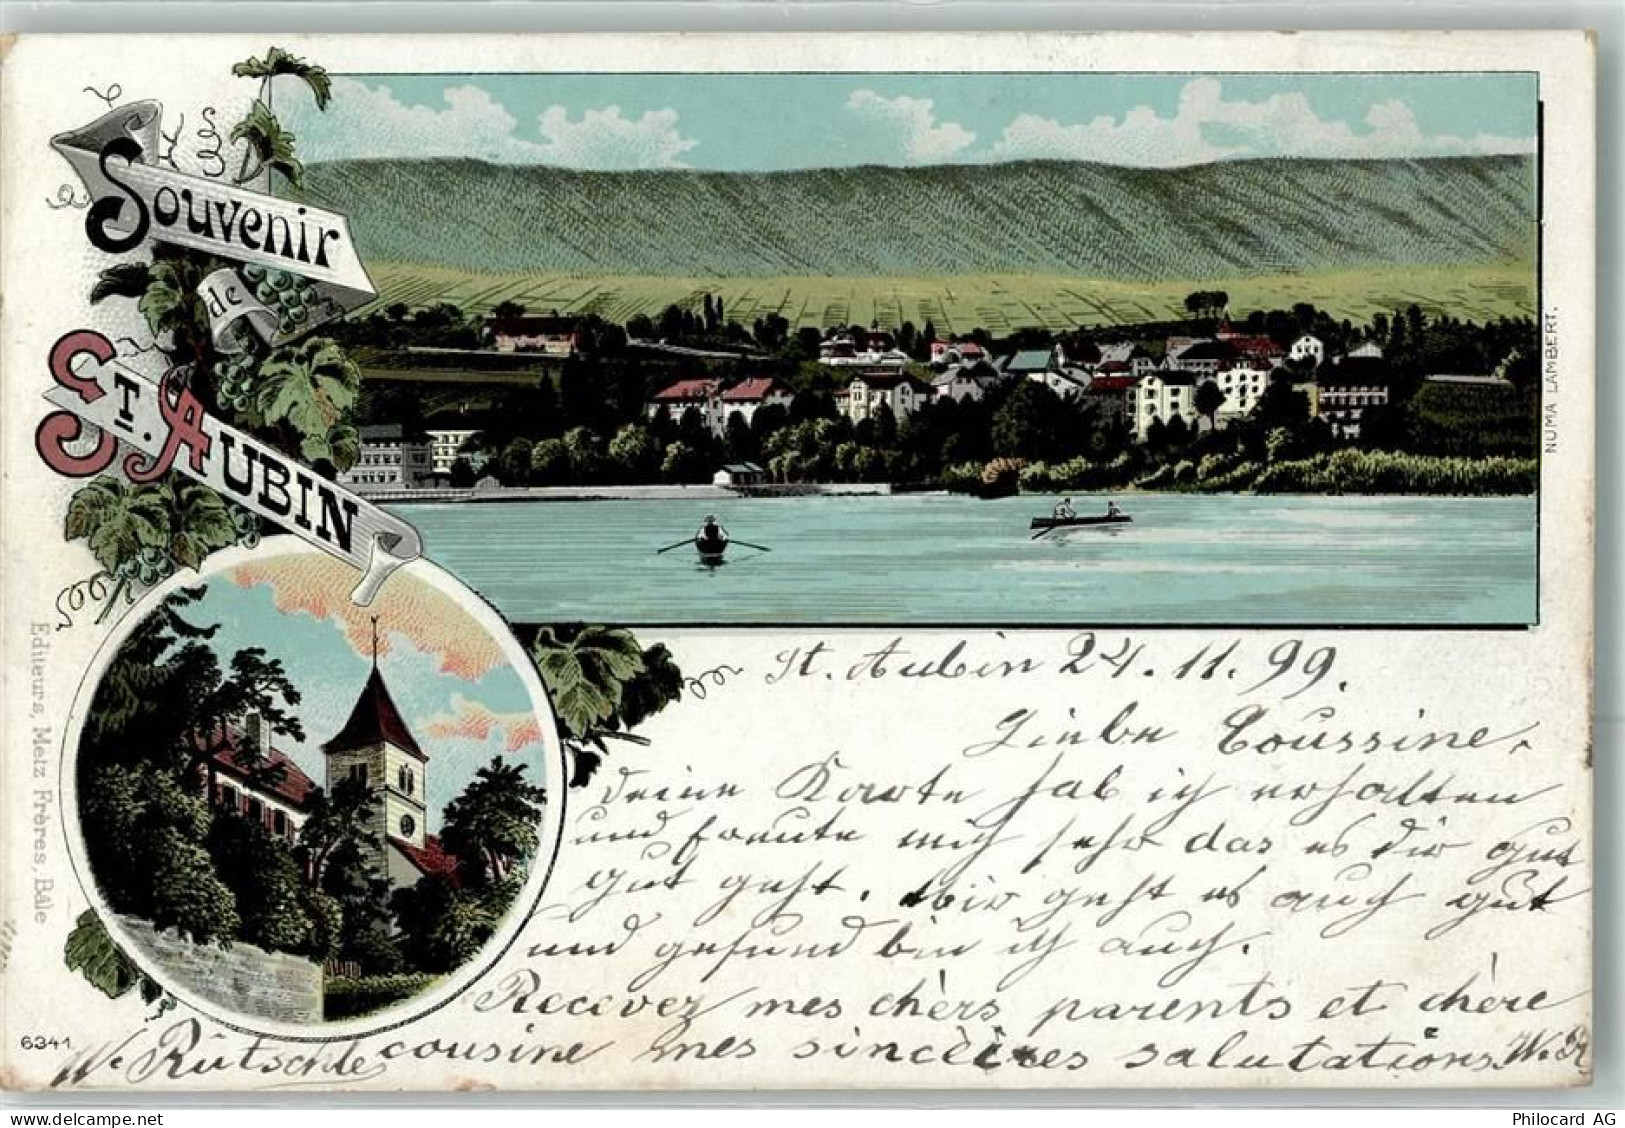 Souvenir
de
St. Aubin
NUMA LAMBERT.
Editeurs, Metz Frères, Bâle
6341
St. Aubin 24. 11. 99.
Liebe Coussine.
deine Karte hab ich erhalten
und freute mich sehr das es dir gut
gut geht. Wir geht es auch gut
und gesund bin ich auch.
Recevez mes chèrs parents et chère
cousine mes sincères salutations. W. R
W. Rütschle
Philocard AG